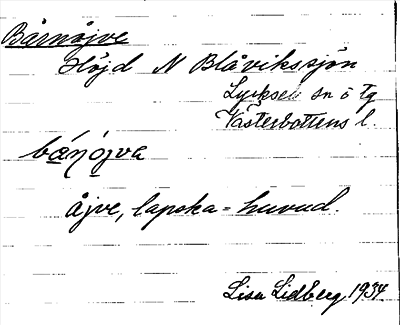 Bårnåjve
Höjd N Blåvikssjön
Lycksele sn o tg
Västerbottens l.
åjve, lapska = huvud.
Lisa Lidberg 1934